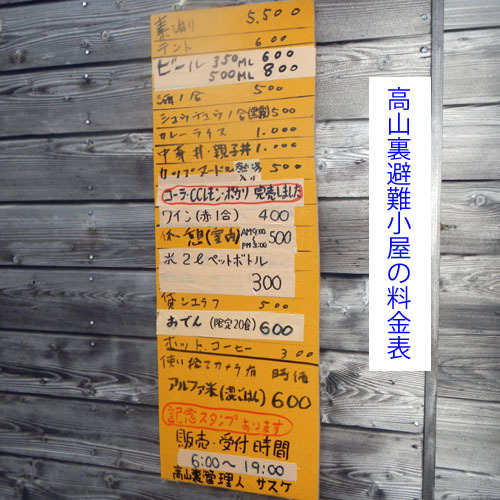 素泊り 5,500
テント 600
ビール 350ML 600
500ML 800
酒1合 500
ショウチュウ1合(雲海)500
カレーライス 1.000
中華丼・親子丼 1.000
カップヌードル 熱湯入り 500
コーラ・CCレモン・ポカリ 完売しました
ワイン(赤1合) 400
休憩(室内) AM9:00 〜 PM3:00 500
水2ℓペットボトル
300
貸シュラフ 500
おでん(限定20食)600
ホットコーヒー 300
使い捨てカメラ有 時価
アルファ米(混ごはん)600
記念スタンプあります
販売・受付時間
6:00〜19:00
高山裏管理人 サスケ
高山裏避難小屋の料金表